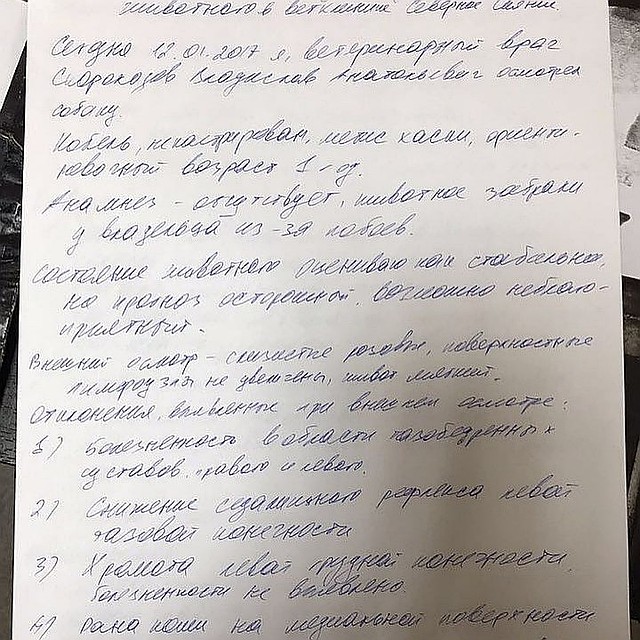 животного в ветклинике Северное Сияние.
Сегодня 12.01.2017 я, ветеринарный врач
Скороходов Владислав Анатольевич осмотрел
собаку.
Кобель, некастрирован, метис хаски, ориенти-
ровочный возраст 1 год.
Анамнез - отсутствует, животное забрали
у владельца из-за побоев.
Состояние животного оцениваю как стабильное,
но прогноз осторожный, возможно неблаго-
приятный.
Внешний осмотр - слизистые розовые, поверхностные
лимфоузлы не увеличены, живот мягкий.
Отклонения, выявленные при внешнем осмотре:
1) Болезненность в области тазобедренных
суставов, правого и левого.
2) Снижение седалищного рефлекса левой
тазовой конечности
3) Хромота левой грудной конечности,
болезненности не выявлено.
4) Рана кожи на медиальной поверхности